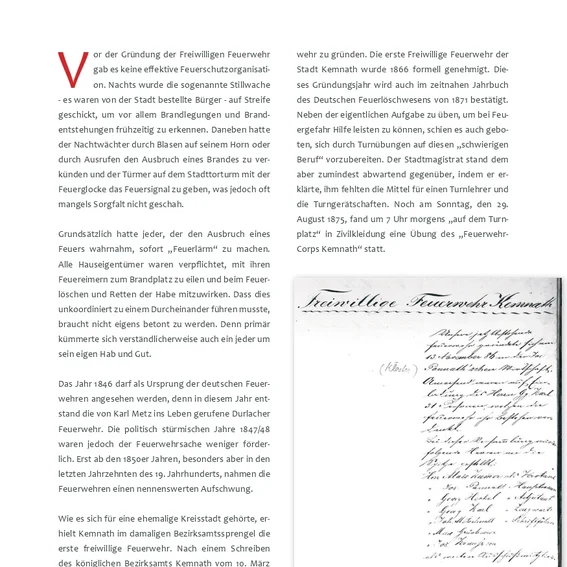 Vor der Gründung der Freiwilligen Feuerwehr
gab es keine effektive Feuerschutzorganisati-
on. Nachts wurde die sogenannte Stillwache
- es waren von der Stadt bestellte Bürger - auf Streife
geschickt, um vor allem Brandlegungen und Brand-
entstehungen frühzeitig zu erkennen. Daneben hatte
der Nachtwächter durch Blasen auf seinem Horn oder
durch Ausrufen den Ausbruch eines Brandes zu ver-
künden und der Türmer auf dem Stadttorturm mit der
Feuerglocke das Feuersignal zu geben, was jedoch oft
mangels Sorgfalt nicht geschah.
Grundsätzlich hatte jeder, der den Ausbruch eines
Feuers wahrnahm, sofort „Feuerlärm“ zu machen.
Alle Hauseigentümer waren verpflichtet, mit ihren
Feuereimern zum Brandplatz zu eilen und beim Feuer-
löschen und Retten der Habe mitzuwirken. Dass dies
unkoordiniert zu einem Durcheinander führen musste,
braucht nicht eigens betont zu werden. Denn primär
kümmerte sich verständlicherweise auch ein jeder um
sein eigen Hab und Gut.
Das Jahr 1846 darf als Ursprung der deutschen Feuer-
wehren angesehen werden, denn in diesem Jahr ent-
stand die von Karl Metz ins Leben gerufene Durlacher
Feuerwehr. Die politisch stürmischen Jahre 1847/48
waren jedoch der Feuerwehrsache weniger förder-
lich. Erst ab den 1850er Jahren, besonders aber in den
letzten Jahrzehnten des 19. Jahrhunderts, nahmen die
Feuerwehren einen nennenswerten Aufschwung.
Wie es sich für eine ehemalige Kreisstadt gehörte, er-
hielt Kemnath im damaligen Bezirksamtssprengel die
erste freiwillige Feuerwehr. Nach einem Schreiben
des königlichen Bezirksamts Kemnath vom 10. März
wehr zu gründen. Die erste Freiwillige Feuerwehr der
Stadt Kemnath wurde 1866 formell genehmigt. Die-
ses Gründungsjahr wird auch im zeitnahen Jahrbuch
des Deutschen Feuerlöschwesens von 1871 bestätigt.
Neben der eigentlichen Aufgabe zu üben, um bei Feu-
ergefahr Hilfe leisten zu können, schien es auch gebo-
ten, sich durch Turnübungen auf diesen „schwierigen
Beruf“ vorzubereiten. Der Stadtmagistrat stand dem
aber zumindest abwartend gegenüber, indem er er-
klärte, ihm fehlten die Mittel für einen Turnlehrer und
die Turngerätschaften. Noch am Sonntag, den 29.
August 1875, fand um 7 Uhr morgens „auf dem Turn-
platz“ in Zivilkleidung eine Übung des „Feuerwehr-
Corps Kemnath“ statt.
Freiwillige Feuerwehr Kemnath